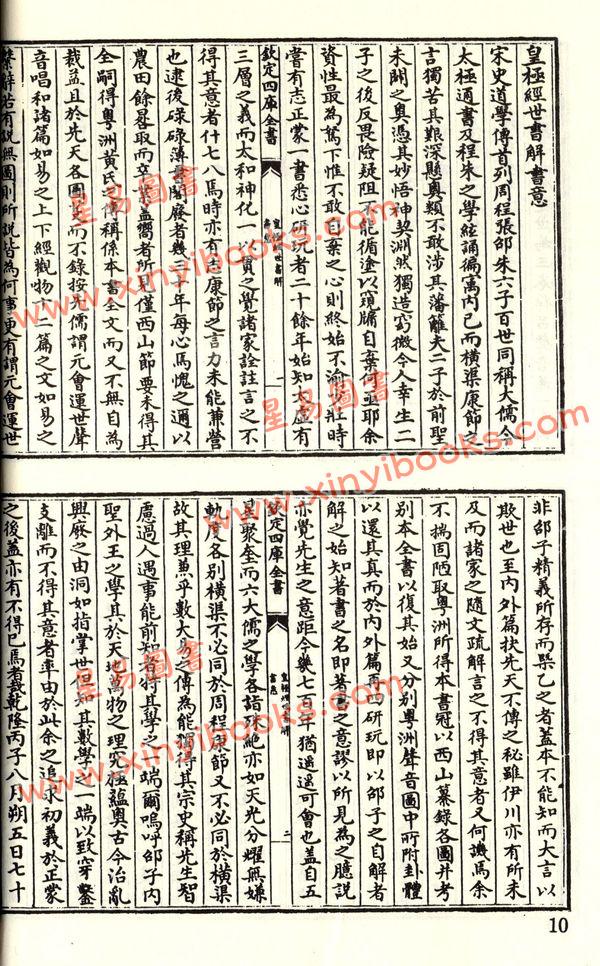 皇極經世書解書意
宋史道學傳首列周程張邵朱六子百世同稱大儒今
太極通書及程朱之學絃誦徧寓內已而横渠康節之
言獨苦其艱深懸奥類不敢涉其藩籬夫二子於前聖
未闢之奥憑其妙悟神契淵然獨造窈微令人幸生二
子之後反畏險疑阻不能循塗以窺牖自棄何亟耶余
資性最為駑下惟不敢自棄之心則終始不渝少壯時
嘗有志正蒙一書悉心研玩者二十餘年始知太虛有
欽定四庫全書
三層之義而太和神化一以貫之覺諸家詮註言之不
得其意者什七八焉時亦有志康節之言力未能兼營
也逮後碌碌薄書閣廢者幾十年每心焉愧之邇以
農田餘晷取而卒業葢嚮者所見僅西山節要未得其
全嗣得粵洲黄氏之傳稱係本書全文而又不無自為
裁益且於先天各圖更而不錄按先儒謂元會運世聲
音唱和諸篇如易之上下經觀物十二篇之文如易之
繫辭若有說無圖則所說皆為何事更有謂元會運世
非邵子精義所存而槩乙之者葢本不能知而大言以
欺世也至內外篇扶先天不傳之秘雖伊川亦有所未
及而諸家之隨文疏解言之不得其意者又何譏焉余
不揣固陋取粵洲所得本書冠以西山纂錄各圖并考
别本全書以復其始又分别粵洲聲音圖中所附卦體
以還其真而於內外篇再四研玩即以邵子之自解者
解之始知著書之名即著書之意謬以所見為之臆說
亦覺先生之意距今幾七百年猶遥遥可會也葢自五
欽定四庫全書
二
星聚奎而六大儒之學各詣殊絶亦如天光分燿無嫌
軌度各别横渠不必同於周程康節又不必同於横渠
故其理兼乎數大易之傳為能獨得其宗史稱先生智
慮過人遇事能前知者特其學之一端爾嗚呼邵子內
聖外王之學其於天地萬物之理究極蘊奥古今治亂
興廢之由洞如指掌世但知其數學之一端以致穿鑿
支離而不得其意者率由於此余之追求初義於正蒙
之後葢亦有不得已焉者哉乾隆丙子八月朔五日七十
10
星易圖書
www.xinyibooks.com
星易圖書
www.xinyibooks.com
星易圖書
www.xinyibooks.com
星易圖書
www.xinyibooks.com